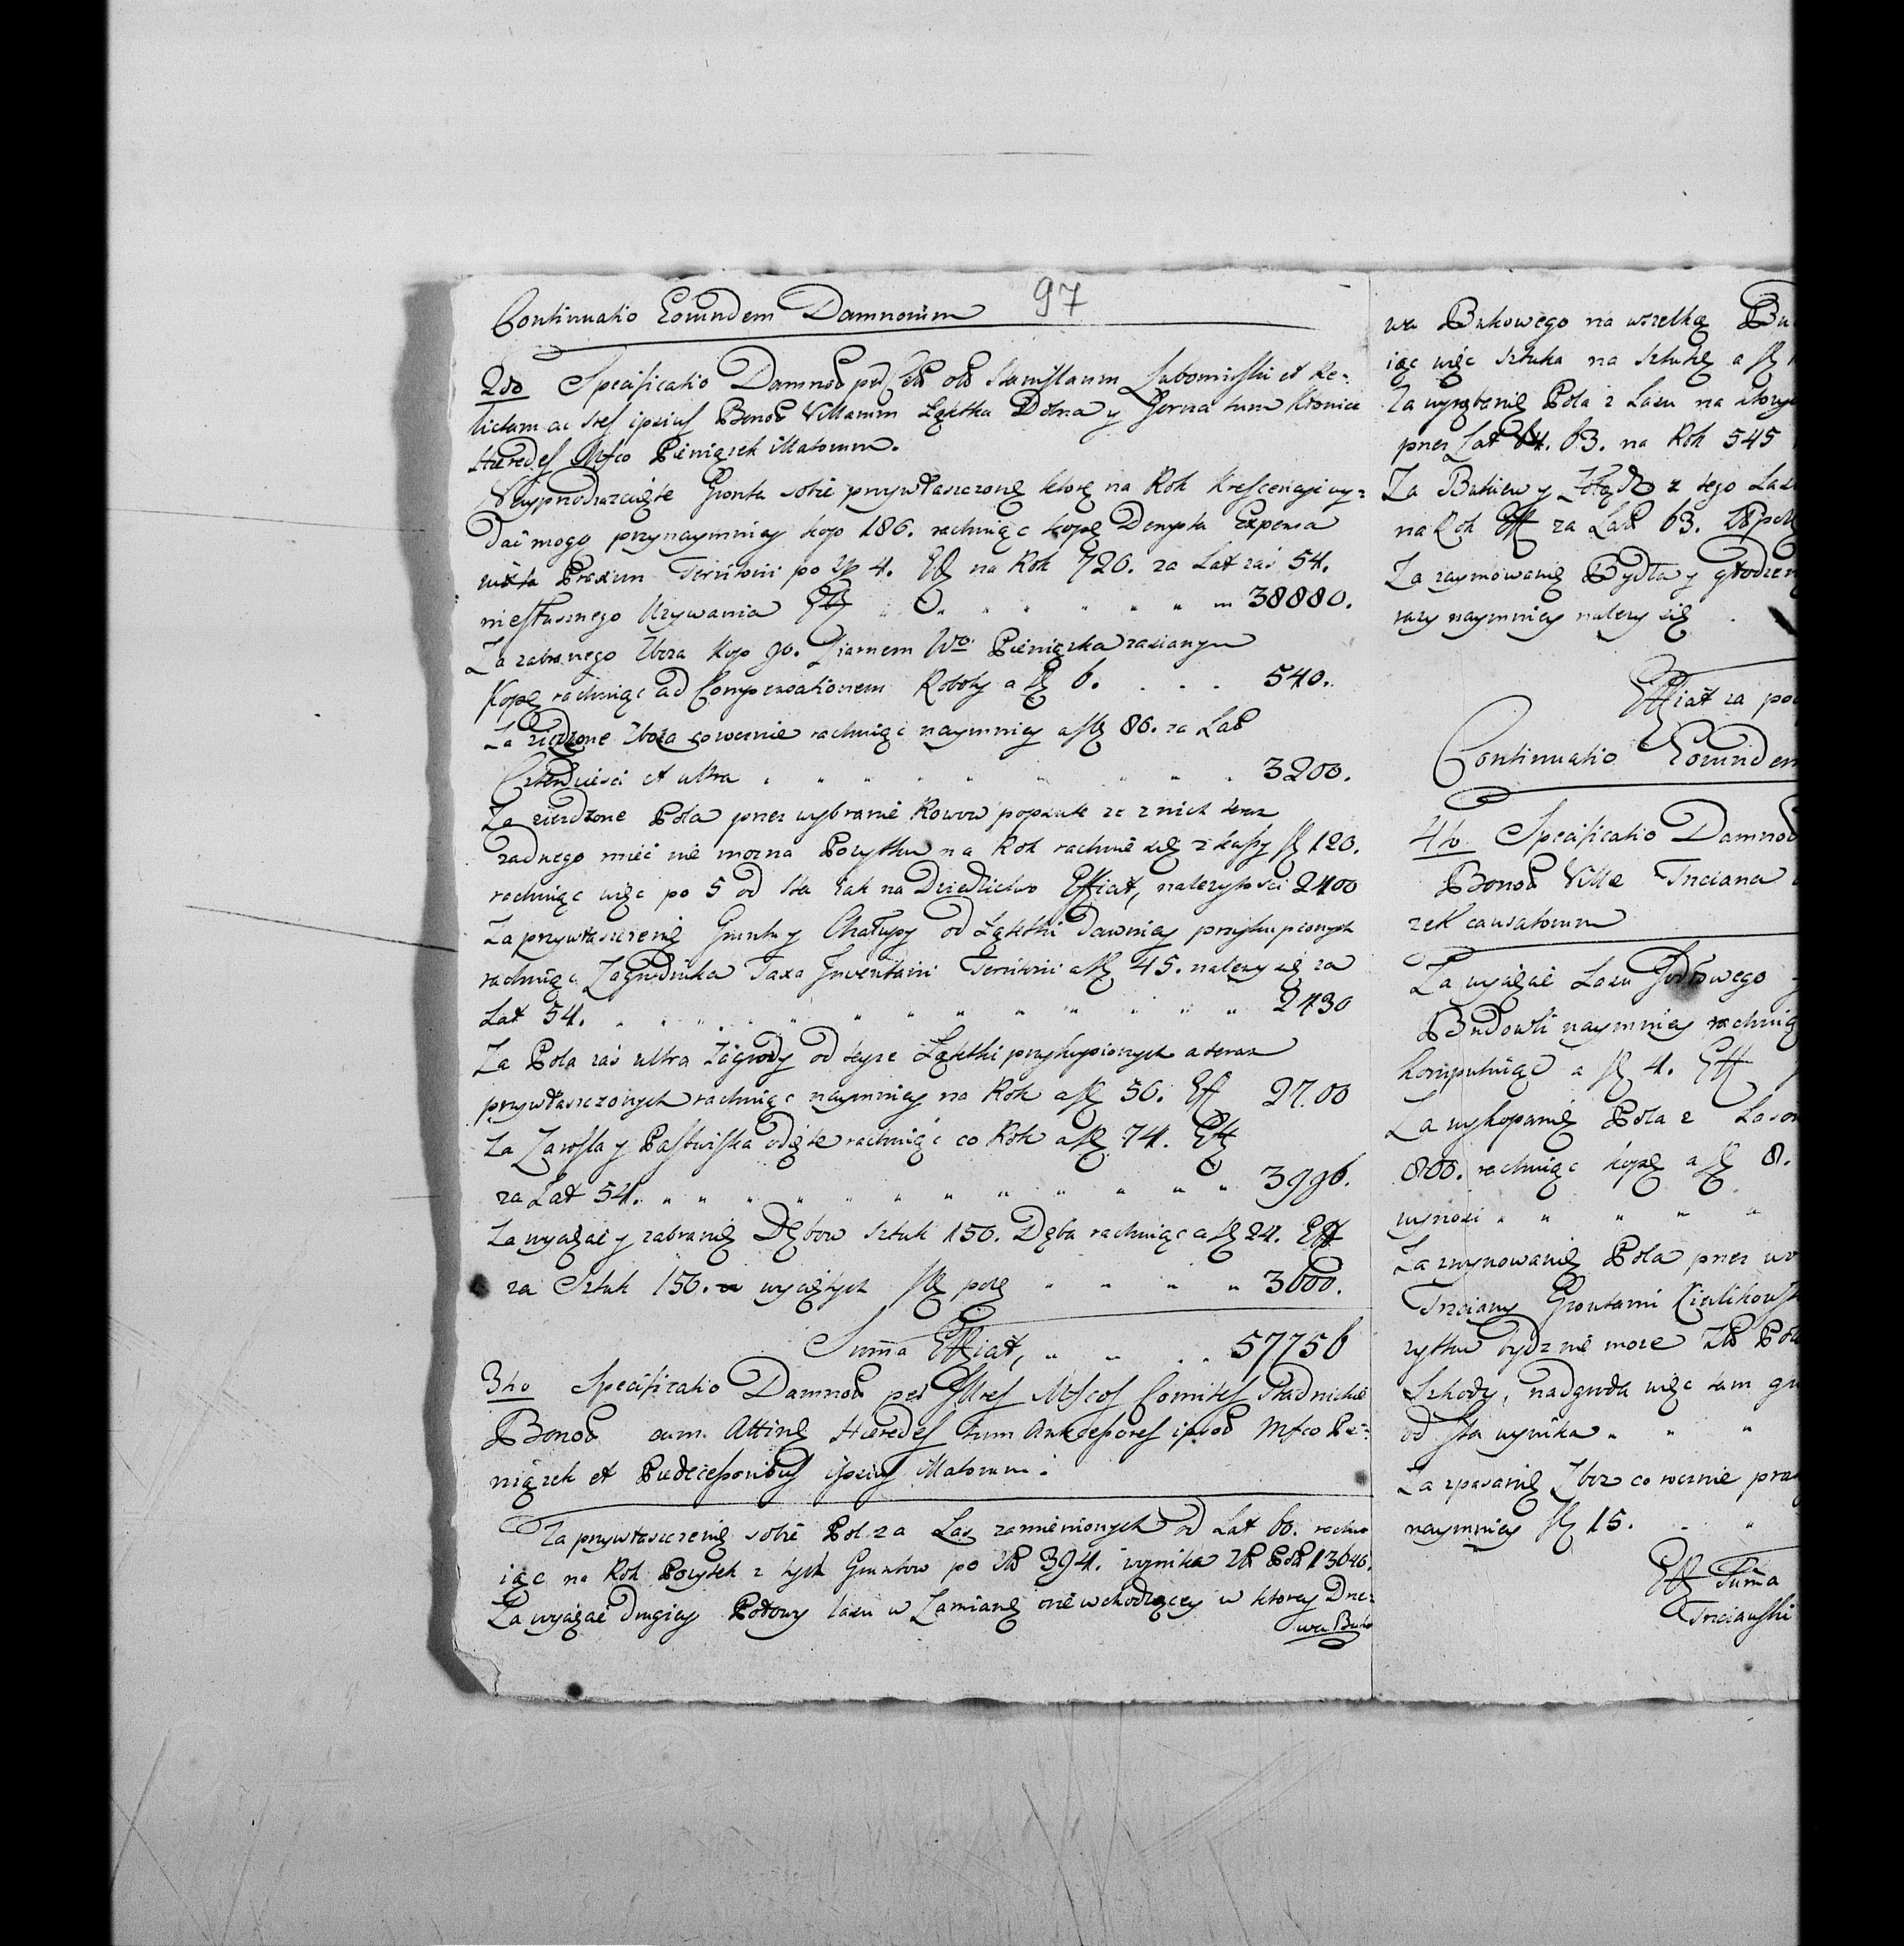 97
Continuatio Eorundem Damnorum
2do Specificatio Damnor per Cels olb Stanislaum Lubomirski et Re-
lictam ac Sres ipsius Bonor Villarum Łąkka Dolna y Gorna tum Kronice
Hæredes Mfco Pieniążek illatorum.
Nayprzod zaięte Gronta sobie przywłaszczone ktore na Rok Krescencyi wy-
dać mogą przynaymniey kop 186. rachuiąc kopę Dempta Expensa
iuxta Praxim Territorii po zp 4. Eff na Rok 720. za Lat zaś 54.
niesłusznego Uzywania Eff 38880.
Za zabranego Zboza kop 90. Ziarnem Wo Pieniązka zasianym
Kopę rachuiąc ad Compensationem Roboty a fl 6. . . . 540.
Za ziedzone Zboza corocznie rachuiąc naymniey a fl 80. za Lat
Czterdzieści et ultra 3200.
Za ziedzone Pola przez wybranie Rowow popsute ze z nich teraz
zadnego mieć nie mozna Pozytku na Rok rachuie się z kassy fl 120.
rachuiąc więc po 5 od sta iak na Dziedzictwo Efficiat, nalezytości 2400
Za przywłaszczenie Gruntu y Chałupy od Łąkki dawniey przykupionych
rachuiąc Zagrodnika Taxa Inventarii Territorii a fl 45. nalezy się za
Lat 54. 2430
Za Pola zaś ultra Zagrody od teyze Łąkki przykupionych a teraz
przywłaszczonych rachuiąc naymniey na Rok a fl 50. Eff 2700
Za Zarosla y Pastwiska odięte rachuiąc co Rok a fl 74. Eff
za Lat 54. 3996.
Za wycięcie y zabranie Dębow sztuk 150. Dęba rachuiąc a fl 24. Eff
za Sztuk 150. wyciętych fl pol 3600.
Summa Efficiat, 57756
3tio Specificatio Damnor per Illres Mfcos Comites Stadnickie
Bonor Hæredes tum Antecessores ipsor Mfco Pie-
niązek et Prædecessoribus ipsius illatorum.
Za przywłaszczenie sobie Pol za Las zamienionych od Lat 60. rachu
iąc na Rok Pozytek z tych Gruntow po zł 394. wynika zł Pol 13646.
Za wycięcie drugiey Połowy lasu w Zamianę nie wchodzącey w ktorey Drze-
wa Buko
wa Bukowego na wszelką Bu
iąc więc Sztuka na Sztukę a fl
Za wyrąbanie Pola z Lasu na ktory
przez Lat 63. na Rok 545
Za Bukiew y Żołądź z tego Lasu
na Rok Eff za Lat 63. zł pol
Za zaymowanie Bydła y głodzen
razy naymniey nalezy się
Efficiat za po
Continuatio Eorundem
4to Specificatio Damnor
Bonor Villæ Trciana
zek causatorum
Za wycięcie Lasu Jodłowego
Budowli naymniey rachuią
komputuiąc a fl 4. Eff
Za wykopanie Pola z Lasow
800. rachuiąc kopę a fl 8.
wynosi
Za zruynowanie Pola przez wo
Trciany Grontami Cieślikowsk
zytku bydz nie moze zł Pol
Szkody, nadgroda więc tam gr
od sta wynika
Za zpasanie Zboz corocznie prze
naymniey fl 15.
Eff Suma
Trcianski